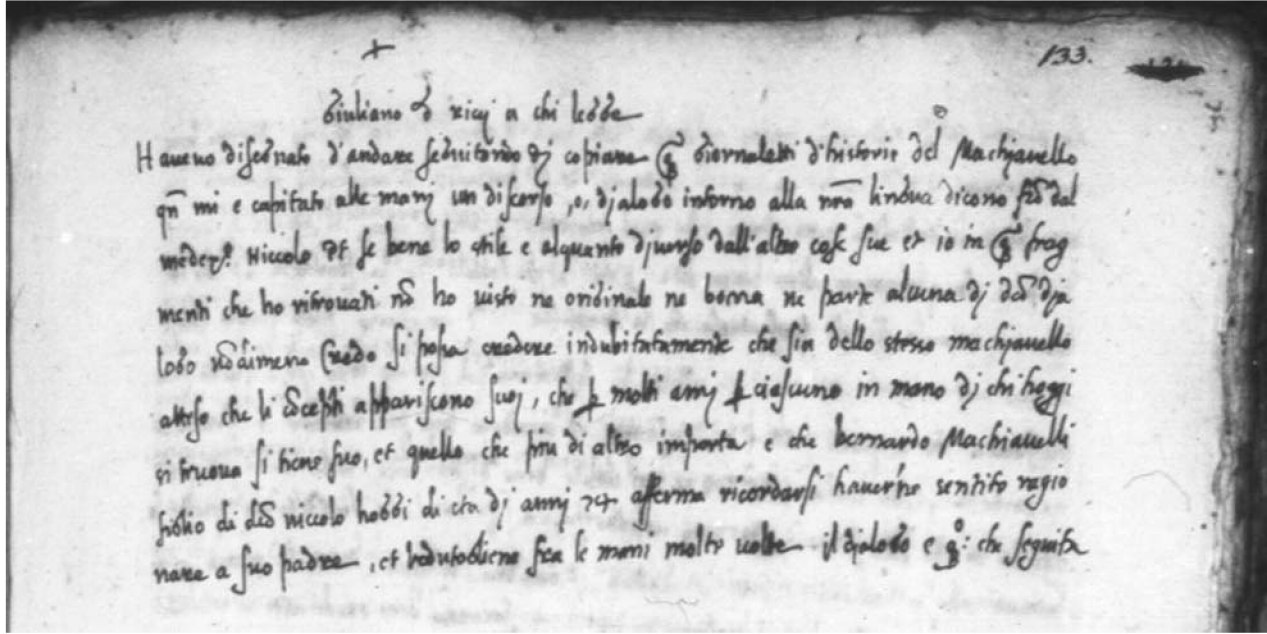 133.
Giuliano de ricci a chi legge
Haveno disegnato d'andare seguitando di copiare q giornaletti d'historie del Machiavello
qn mi e capitato alle manj un discorso ,o, djalogo intorno alla nrã lingua dicono fto dal
medeso. Niccolo et se bene lo stile e alquanto djverso dall'altre cose sue et io in q frag
menti che ho ritrouati nõ ho uisto ne originale ne bozza ne parte alcuna dj dto dja
logo nõdimeno Credo si possa credere indubitatamente che sia dello stesso machjavello
atteso che li cõcepti appariscono suoj, che p molti annj p ciascuno in mano dj chi hoggi
si truova si tiene suo, et quello che piu di altro importa e che bernardo Machiavelli
figlio di dto niccolo hoggi di eta dj annj 74 afferma ricordarsi haverne sentito ragio
nare a suo padre, et vedutogliene fra le mani molte uolte il djalogo e qo: che seguita